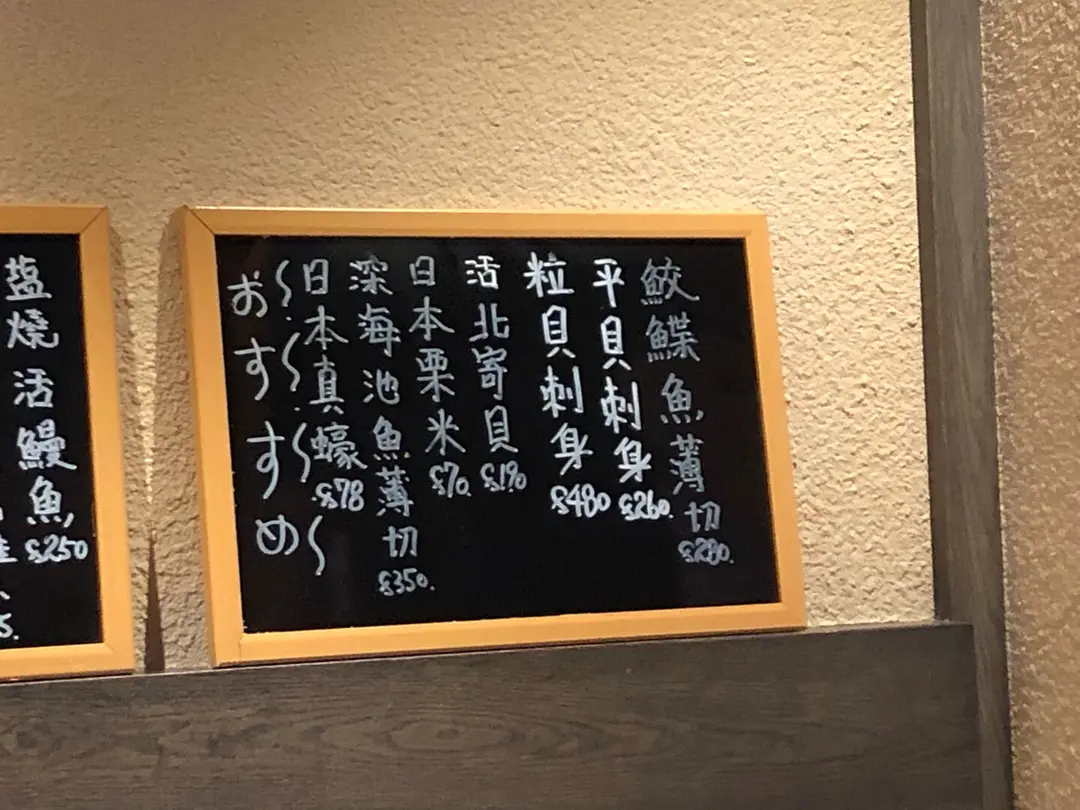 鮫鰈魚薄切 $280.
平貝刺身 $260.
粒貝刺身 $480
活北寄貝 $190
日本栗米 $70.
深海池魚薄切 $350.
日本真蠔 $78
おすすめ
塩燒活鰻魚 $250